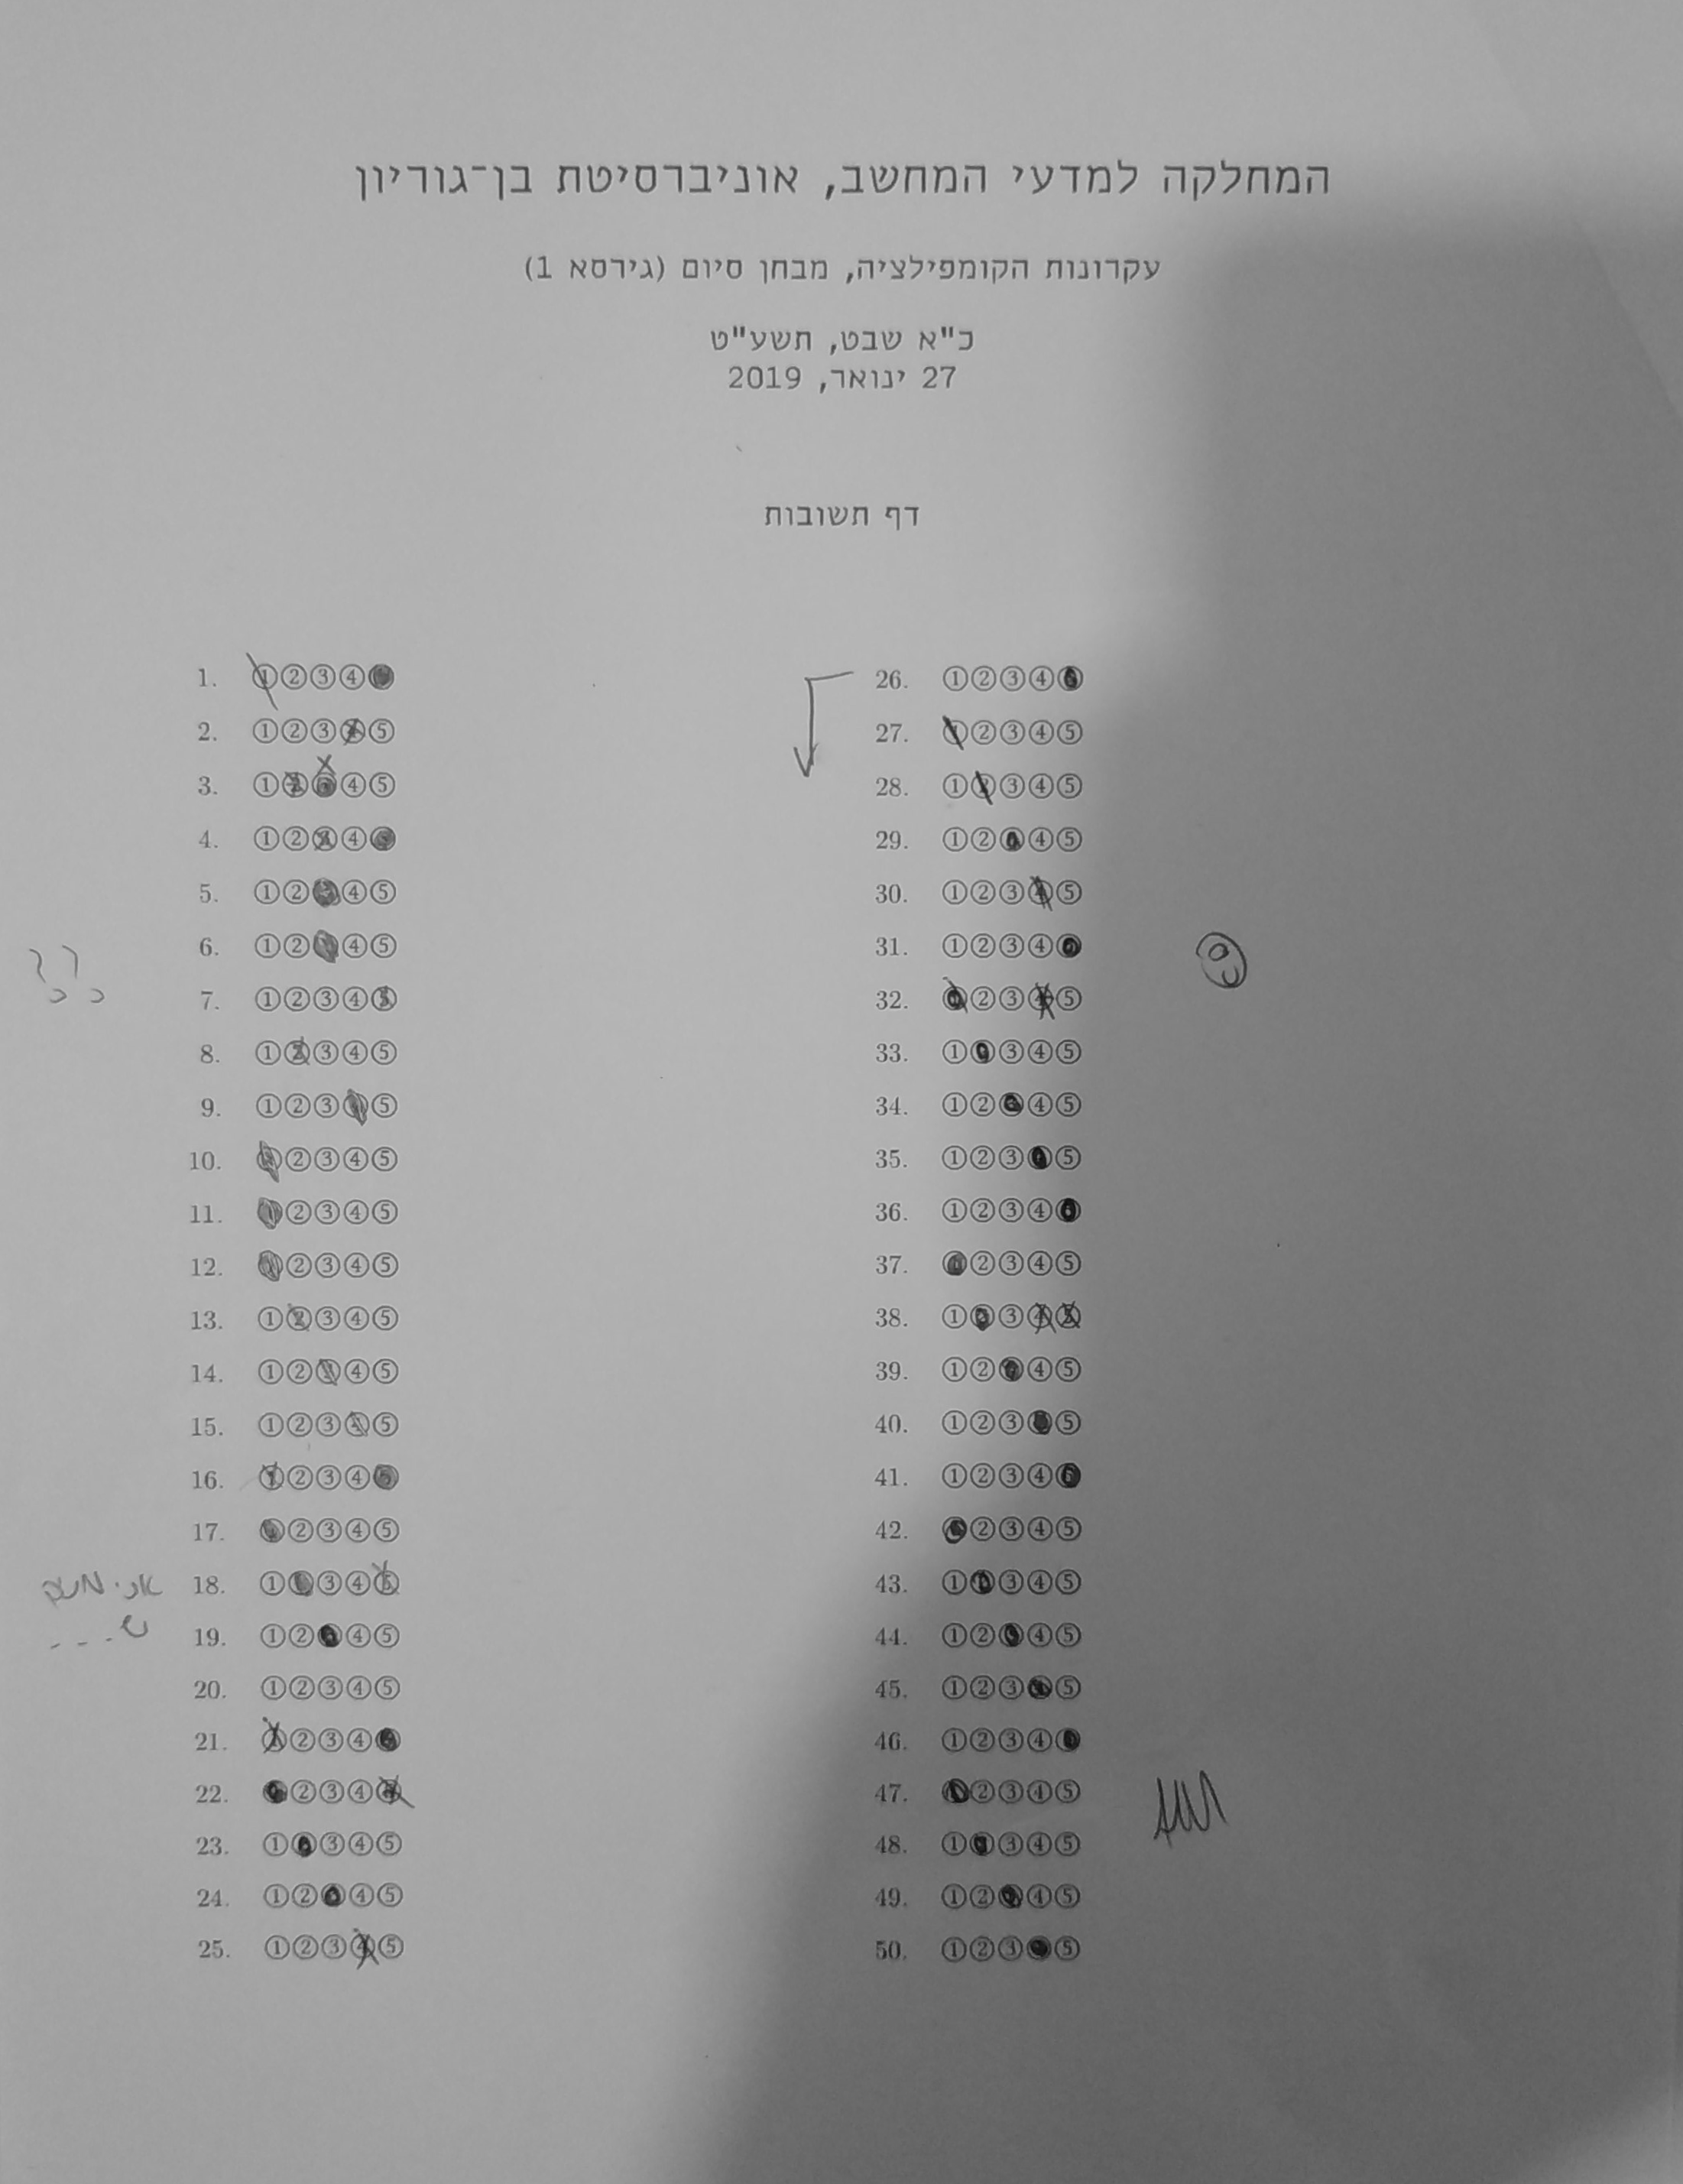 המחלקה למדעי המחשב, אוניברסיטת בן־גוריון
עקרונות הקומפילציה, מבחן סיום (גירסא 1)
כ"א שבט, תשע"ט
27 ינואר, 2019
דף תשובות
1. 1 2 3 4
2. 1 2 3 4 5
3. 1 2 4 5
4. 1 2 3 4 5
5. 1 2 4 5
6. 1 2 4 5
7. 1 2 3 4 5
8. 1 2 3 4 5
9. 1 2 3 5
10. 2 3 4 5
11. 2 3 4 5
12. 2 3 4 5
13. 1 2 3 4 5
14. 1 2 3 4 5
15. 1 2 3 4 5
16. 1 2 3 4
17. 2 3 4 5
אני 18. 1 3 4 5
19. 1 2 4 5
20. 1 2 3 4 5
21. 1 2 3 4
22. 2 3 4
23. 1 3 4 5
24. 1 2 4 5
25. 1 2 3 4 5
26. 1 2 3 4
27. 1 2 3 4 5
28. 1 2 3 4 5
29. 1 2 4 5
30. 1 2 3 4 5
31. 1 2 3 4
32. 2 3 4 5
33. 1 3 4 5
34. 1 2 4 5
35. 1 2 3 5
36. 1 2 3 4
37. 2 3 4 5
38. 1 3 4 5
39. 1 2 4 5
40. 1 2 3 5
41. 1 2 3 4
42. 2 3 4 5
43. 1 3 4 5
44. 1 2 4 5
45. 1 2 3 5
46. 1 2 3 4
47. 2 3 4 5
48. 1 3 4 5
49. 1 2 4 5
50. 1 2 3 5